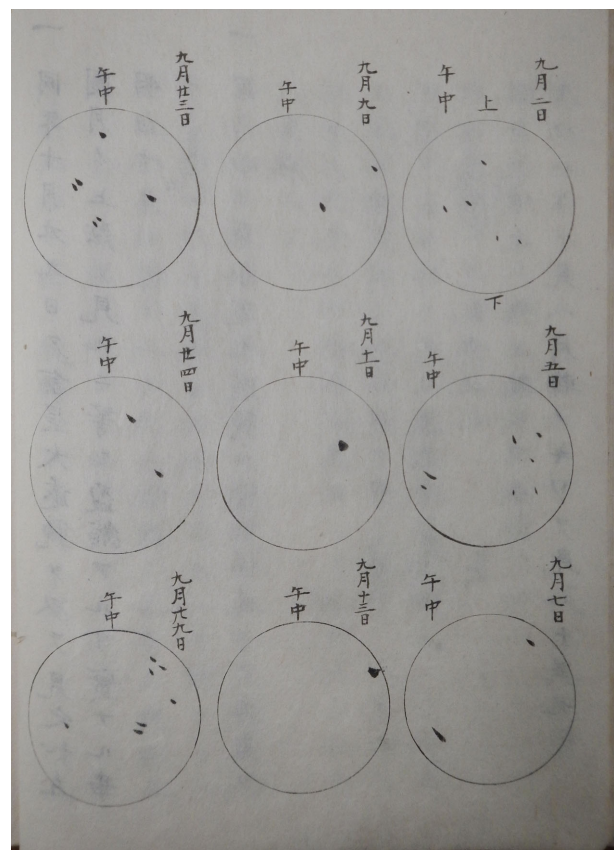 九月二日
午中
上
下
九月五日
午中
九月七日
午中
九月九日
午中
九月十一日
午中
九月十三日
午中
九月廿三日
午中
九月廿四日
午中
九月廿九日
午中